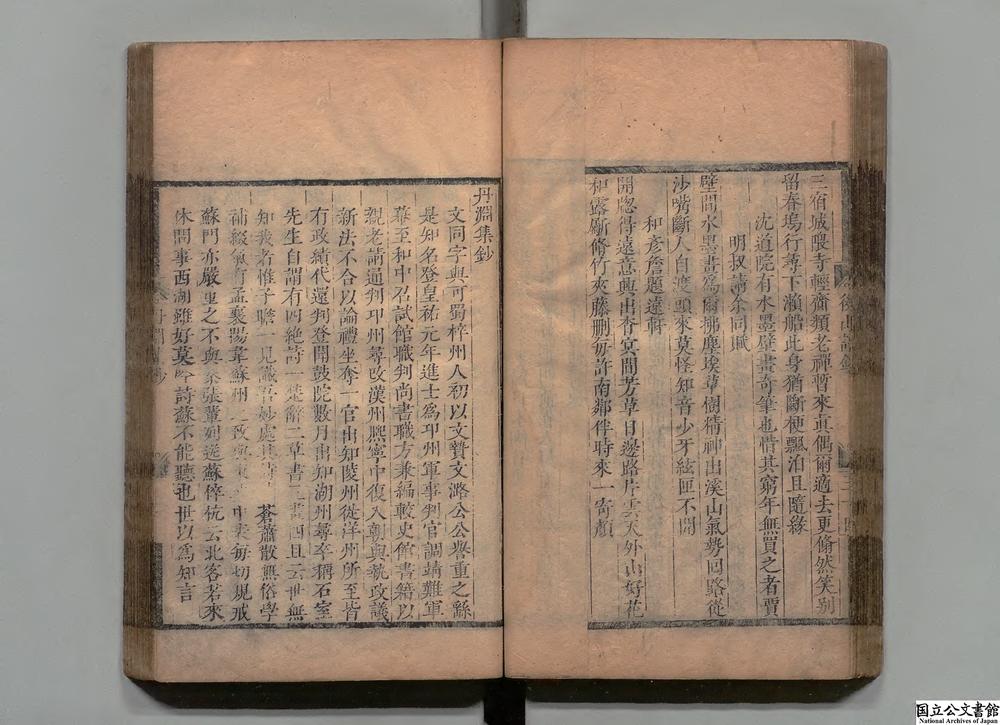 三宿城隈寺輕齎頼老禪暫來真偶爾適去更翛然笑别
留春塢行尋下瀨船此身猶斷梗飄泊且隨緣
沈道院有水墨壁畫奇筆也惜其窮年無買之者賈
明叔請余同賦
壁間水墨畫爲爾拂塵埃草樹精神出溪山氣勢回路從
沙嘴斷人自渡頭來莫怪知音少牙絃匣不開
和彦詹題遠軒
開窓得遠意興出杳冥間芳草日邊路片雲天外山好花
和露斸脩竹夾藤刪毎許南鄰伴時來一寄顔
丹淵集鈔
文同字與可蜀梓州人初以文贄文潞公公譽重之繇
是知名登皇祐元年進士爲邛州軍事判官調靖難軍
幕至和中召試館職判尚書職方兼編較史館書籍以
親老請通判邛州尋改漢州熙寧中復入朝與執政議
新法不合以論禮坐奪一官出知陵州徙洋州所至皆
有政績代還判登聞鼓院數月出知湖州尋卒稱石室
先生自謂有四絶詩一楚辭二草書三畫四且云世無
知我者惟子瞻一見識吾妙處其詩 蒼蕭散無俗學
補綴氣有孟襄陽韋蘇州之致與東 中表每切規戒
蘇門亦嚴重之不與秦張輩列送蘇倅杭云北客若來
休問事西湖雖好莫吟詩蘇不能聽也世以爲知言
国立公文書館
National Archives of Japan